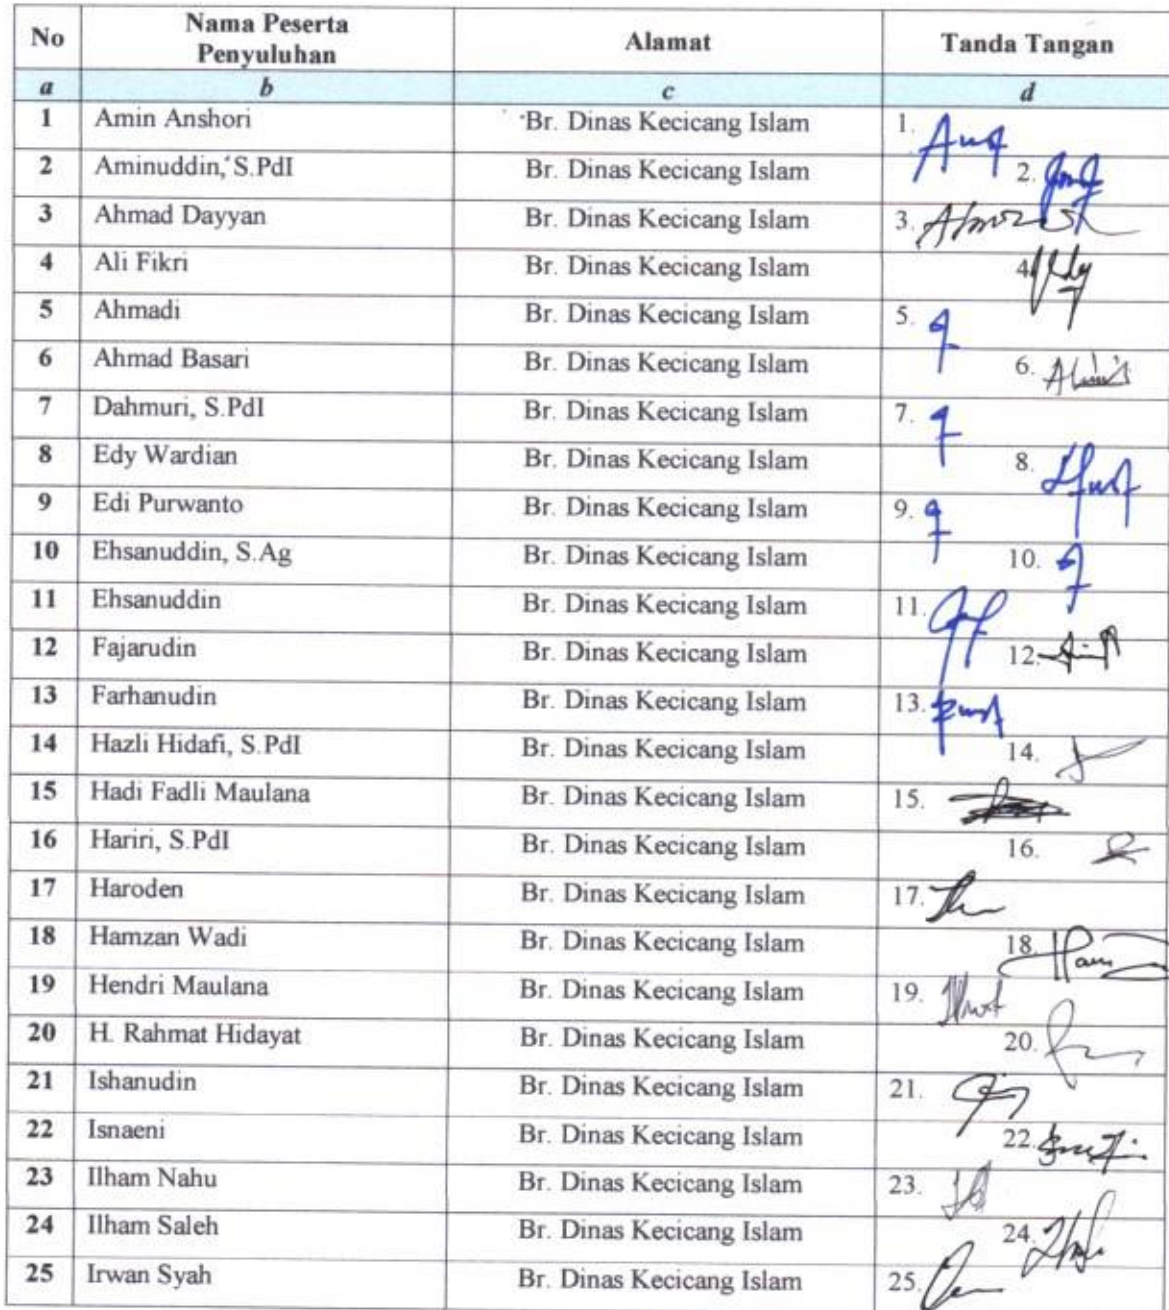 No Nama Peserta Penyuluhan Alamat Tanda Tangan
a b c d
1 Amin Anshori Br. Dinas Kecicang Islam 1.
2 Aminuddin, S.PdI Br. Dinas Kecicang Islam 2.
3 Ahmad Dayyan Br. Dinas Kecicang Islam 3.
4 Ali Fikri Br. Dinas Kecicang Islam 4.
5 Ahmadi Br. Dinas Kecicang Islam 5.
6 Ahmad Basari Br. Dinas Kecicang Islam 6.
7 Dahmuri, S.PdI Br. Dinas Kecicang Islam 7.
8 Edy Wardian Br. Dinas Kecicang Islam 8.
9 Edi Purwanto Br. Dinas Kecicang Islam 9.
10 Ehsanuddin, S.Ag Br. Dinas Kecicang Islam 10.
11 Ehsanuddin Br. Dinas Kecicang Islam 11.
12 Fajarudin Br. Dinas Kecicang Islam 12.
13 Farhanudin Br. Dinas Kecicang Islam 13.
14 Hazli Hidafi, S.PdI Br. Dinas Kecicang Islam 14.
15 Hadi Fadli Maulana Br. Dinas Kecicang Islam 15.
16 Hariri, S.PdI Br. Dinas Kecicang Islam 16.
17 Haroden Br. Dinas Kecicang Islam 17.
18 Hamzan Wadi Br. Dinas Kecicang Islam 18.
19 Hendri Maulana Br. Dinas Kecicang Islam 19.
20 H. Rahmat Hidayat Br. Dinas Kecicang Islam 20.
21 Ishanudin Br. Dinas Kecicang Islam 21.
22 Isnaeni Br. Dinas Kecicang Islam 22.
23 Ilham Nahu Br. Dinas Kecicang Islam 23.
24 Ilham Saleh Br. Dinas Kecicang Islam 24.
25 Irwan Syah Br. Dinas Kecicang Islam 25.